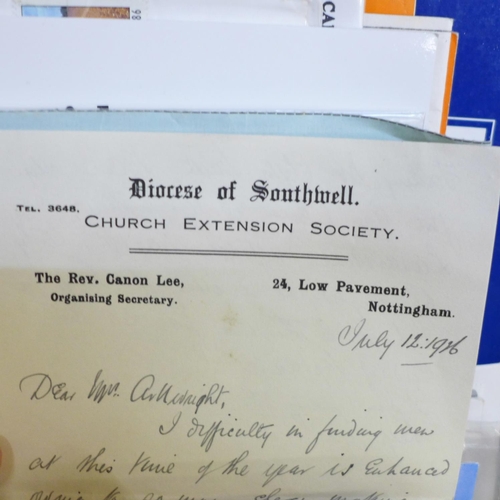 CA
86
Diocese of Southwell.
TEL. 3648.
CHURCH EXTENSION SOCIETY.
The Rev. Canon Lee,
Organising Secretary.
24, Low Pavement,
Nottingham.
July 12: 1926
Dear Mr. Arkwright,
I difficulty in finding men
at this time of the year is Enhanced